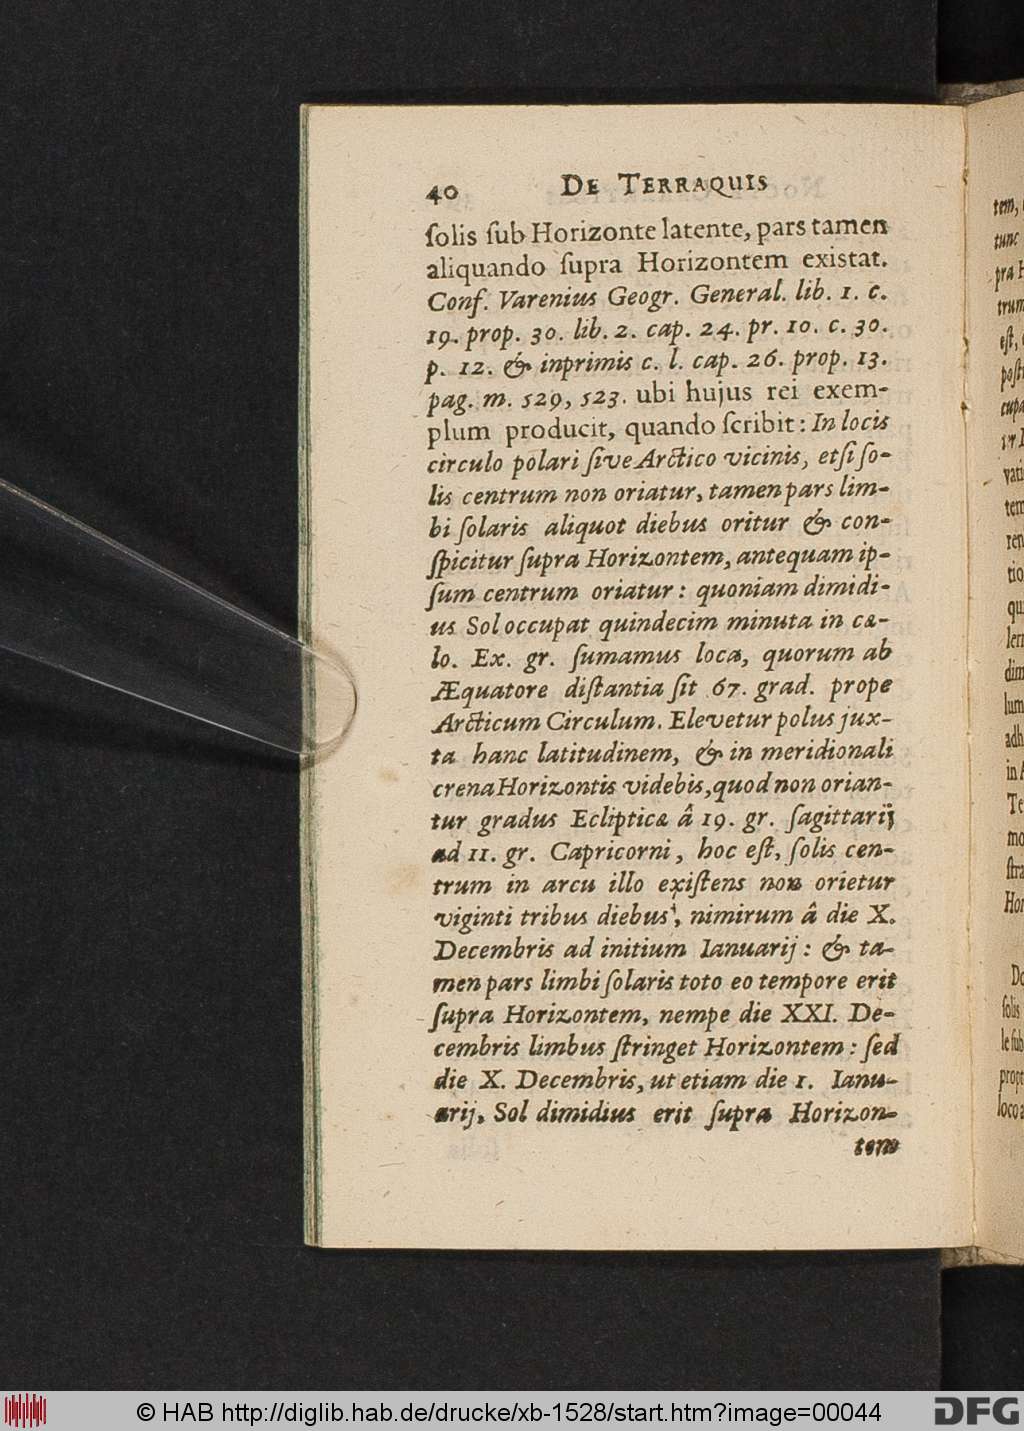 40 DE TERRAQUIS
ſolis ſub Horizonte latente, pars tamen
aliquando ſupra Horizontem existat.
Conf. Varenius Geogr. General. lib. 1. c.
19. prop. 30. lib. 2. cap. 24. pr. 10. c. 30.
p. 12. & inprimis c. l. cap. 26. prop. 13.
pag. m. 529, 523. ubi hujus rei exem-
plum producit, quando ſcribit: In locis
circulo polari ſive Arctico vicinis, etſi ſo-
lis centrum non oriatur, tamen pars lim-
bi ſolaris aliquot diebus oritur & con-
ſpicitur ſupra Horizontem, antequam ip-
ſum centrum oriatur: quoniam dimidi-
us Sol occupat quindecim minuta in cæ-
lo. Ex. gr. ſumamus loca, quorum ab
Æquatore diſtantia ſit 67. grad. prope
Arcticum Circulum. Elevetur polus jux-
ta hanc latitudinem, & in meridionali
crena Horizontis videbis, quod non orian-
tur gradus Eclipticæ â 19. gr. ſagittarij
ad 11. gr. Capricorni, hoc eſt, ſolis cen-
trum in arcu illo exiſtens non orietur
viginti tribus diebus, nimirum â die X.
Decembris ad initium Ianuarij: & ta-
men pars limbi ſolaris toto eo tempore erit
ſupra Horizontem, nempe die XXI. De-
cembris limbus ſtringet Horizontem: ſed
die X. Decembris, ut etiam die 1. Ianu-
arij, Sol dimidius erit ſupra Horizon-
tem
tem,
tunc
pra H
trum
eſt,
poſt
cupa
vati
tem
ren
tio
qu
lem
dim
lum
adh
in
Te
mo
ſtra
Hor
ſolis
le ſub
propt
loco
© HAB http://diglib.hab.de/drucke/xb-1528/start.htm?image=00044
DFG